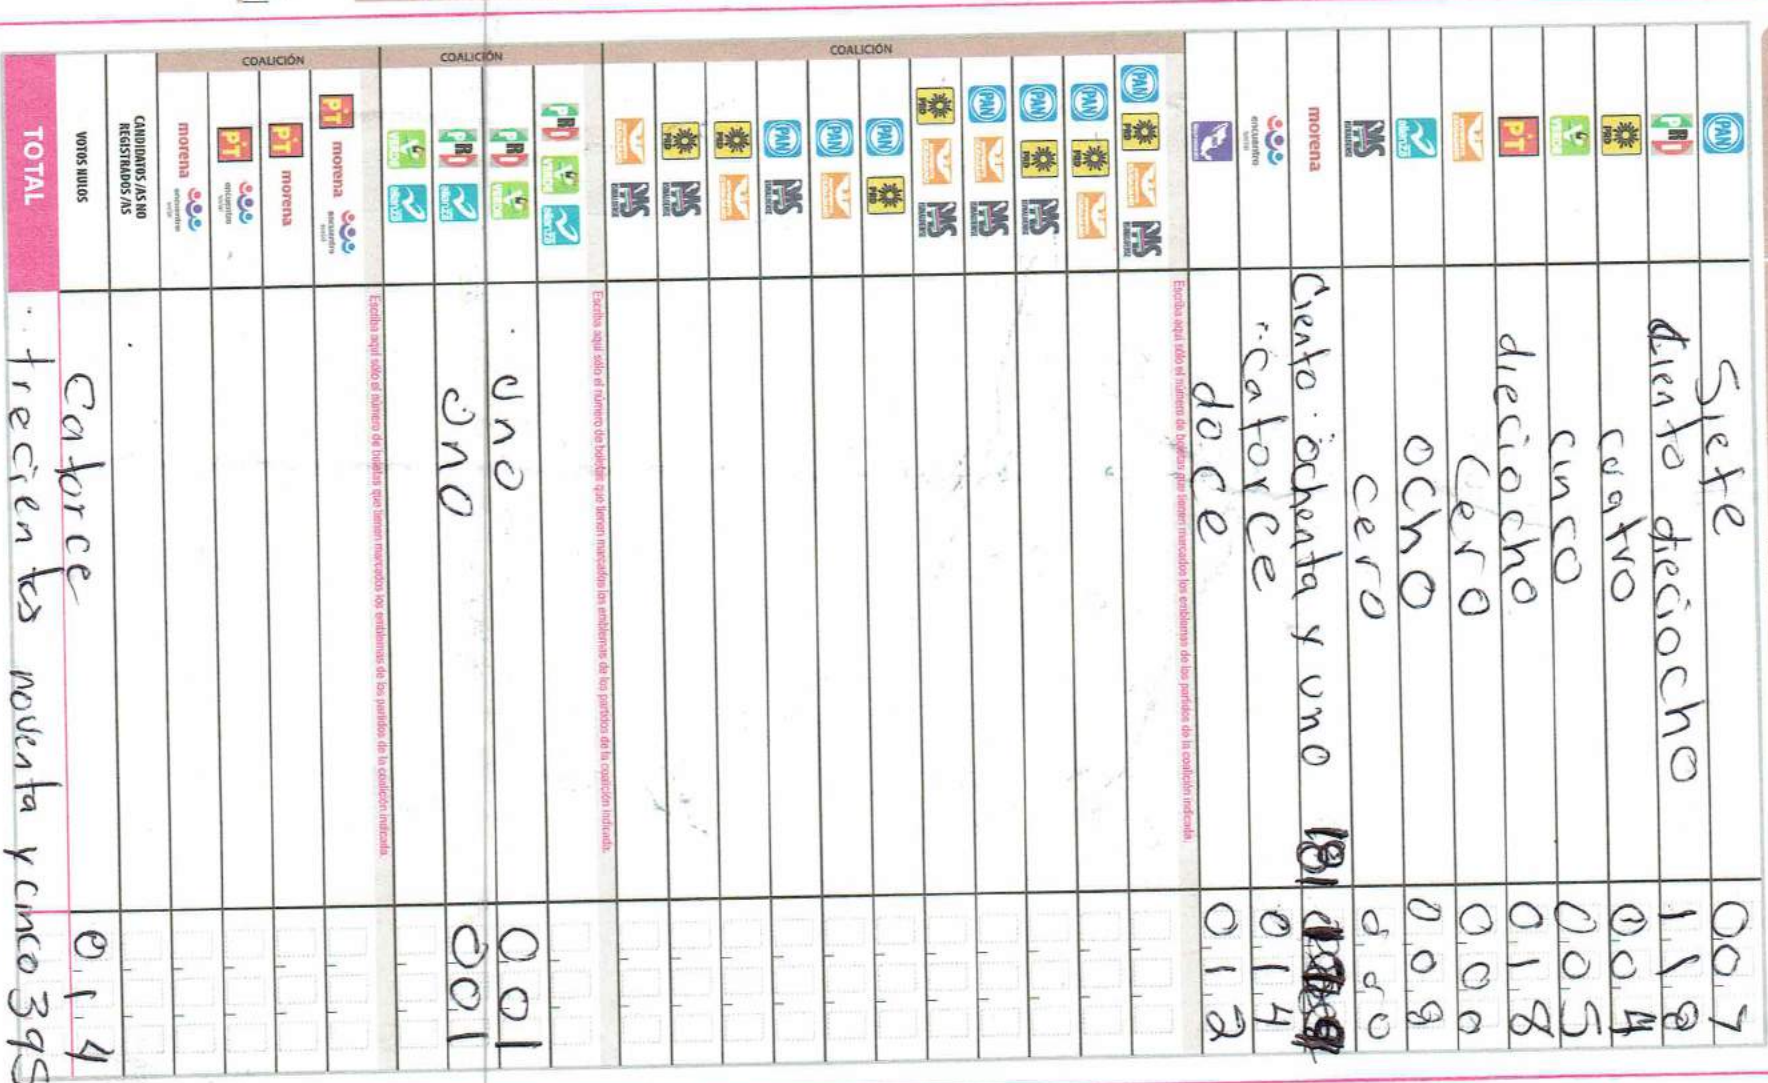 PAN Siete 007
PRI Ciento dieciocho 118
PRD cuatro 004
VERDE cinco 005
PT dieciocho 018
Cero 000
alianza ocho 008
PAS SINALOENSE cero 000
morena Ciento ochenta y uno 181
encuentro social Catorce 014
doce 012
Escriba aquí sólo el número de boletas que tienen marcados los emblemas de los partidos de la coalición indicada.
COALICIÓN
PAN PRD PAS SINALOENSE
PAN PRD
PAN PRD PAS SINALOENSE
PAN PAS SINALOENSE
PRD PAS SINALOENSE
PAN PRD
PAN
PAN PAS SINALOENSE
PRD
PRD PAS SINALOENSE
PAS SINALOENSE
Escriba aquí sólo el número de boletas que tienen marcados los emblemas de los partidos de la coalición indicada.
COALICIÓN
PRI VERDE alianza
PRI VERDE uno 001
PRI alianza uno 001
VERDE alianza
Escriba aquí sólo el número de boletas que tienen marcados los emblemas de los partidos de la coalición indicada.
COALICIÓN
PT morena encuentro social
PT morena
PT encuentro social
morena encuentro social
CANDIDATOS/AS NO REGISTRADOS/AS
VOTOS NULOS Catorce 014
TOTAL trecientos noventa y cinco 395